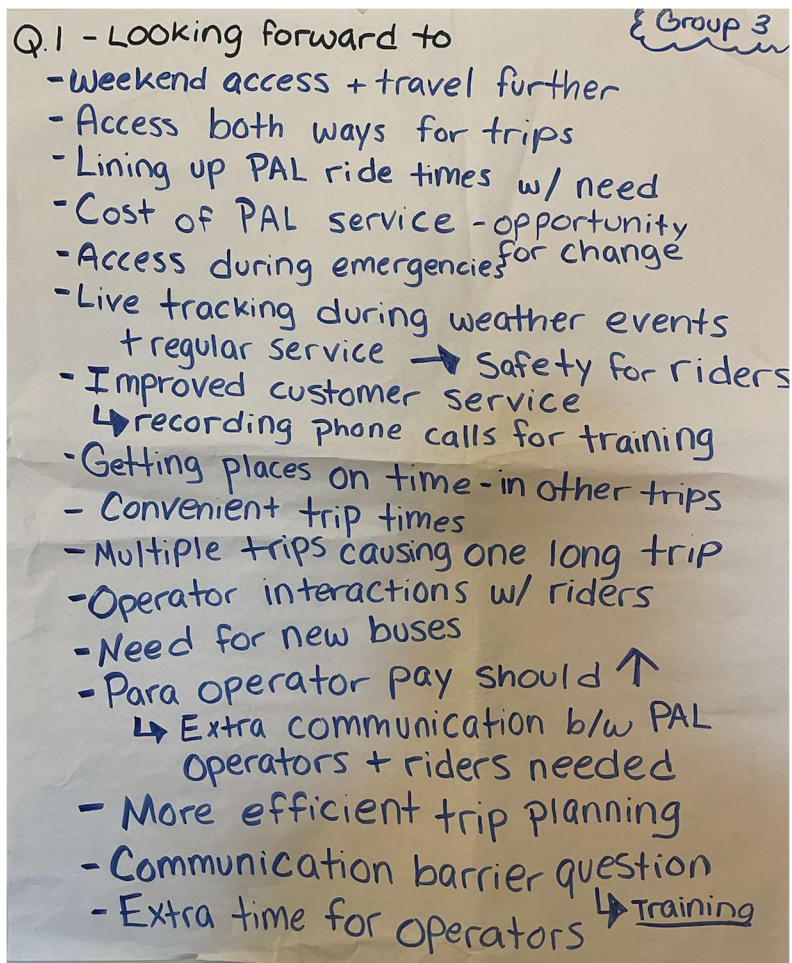 Group 3
Q.1 - Looking forward to
- Weekend access + travel further
- Access both ways for trips
- Lining up PAL ride times w/ need
- Cost of PAL service - opportunity
for change
- Access during emergencies
- Live tracking during weather events
+ regular service → Safety for riders
- Improved customer service
↳ recording phone calls for training
- Getting places on time - in other trips
- Convenient trip times
- Multiple trips causing one long trip
- Operator interactions w/ riders
- Need for new buses
- Para operator pay should ↑
↳ Extra communication b/w PAL
operators + riders needed
- More efficient trip planning
- Communication barrier question
↳ Training
- Extra time for operators